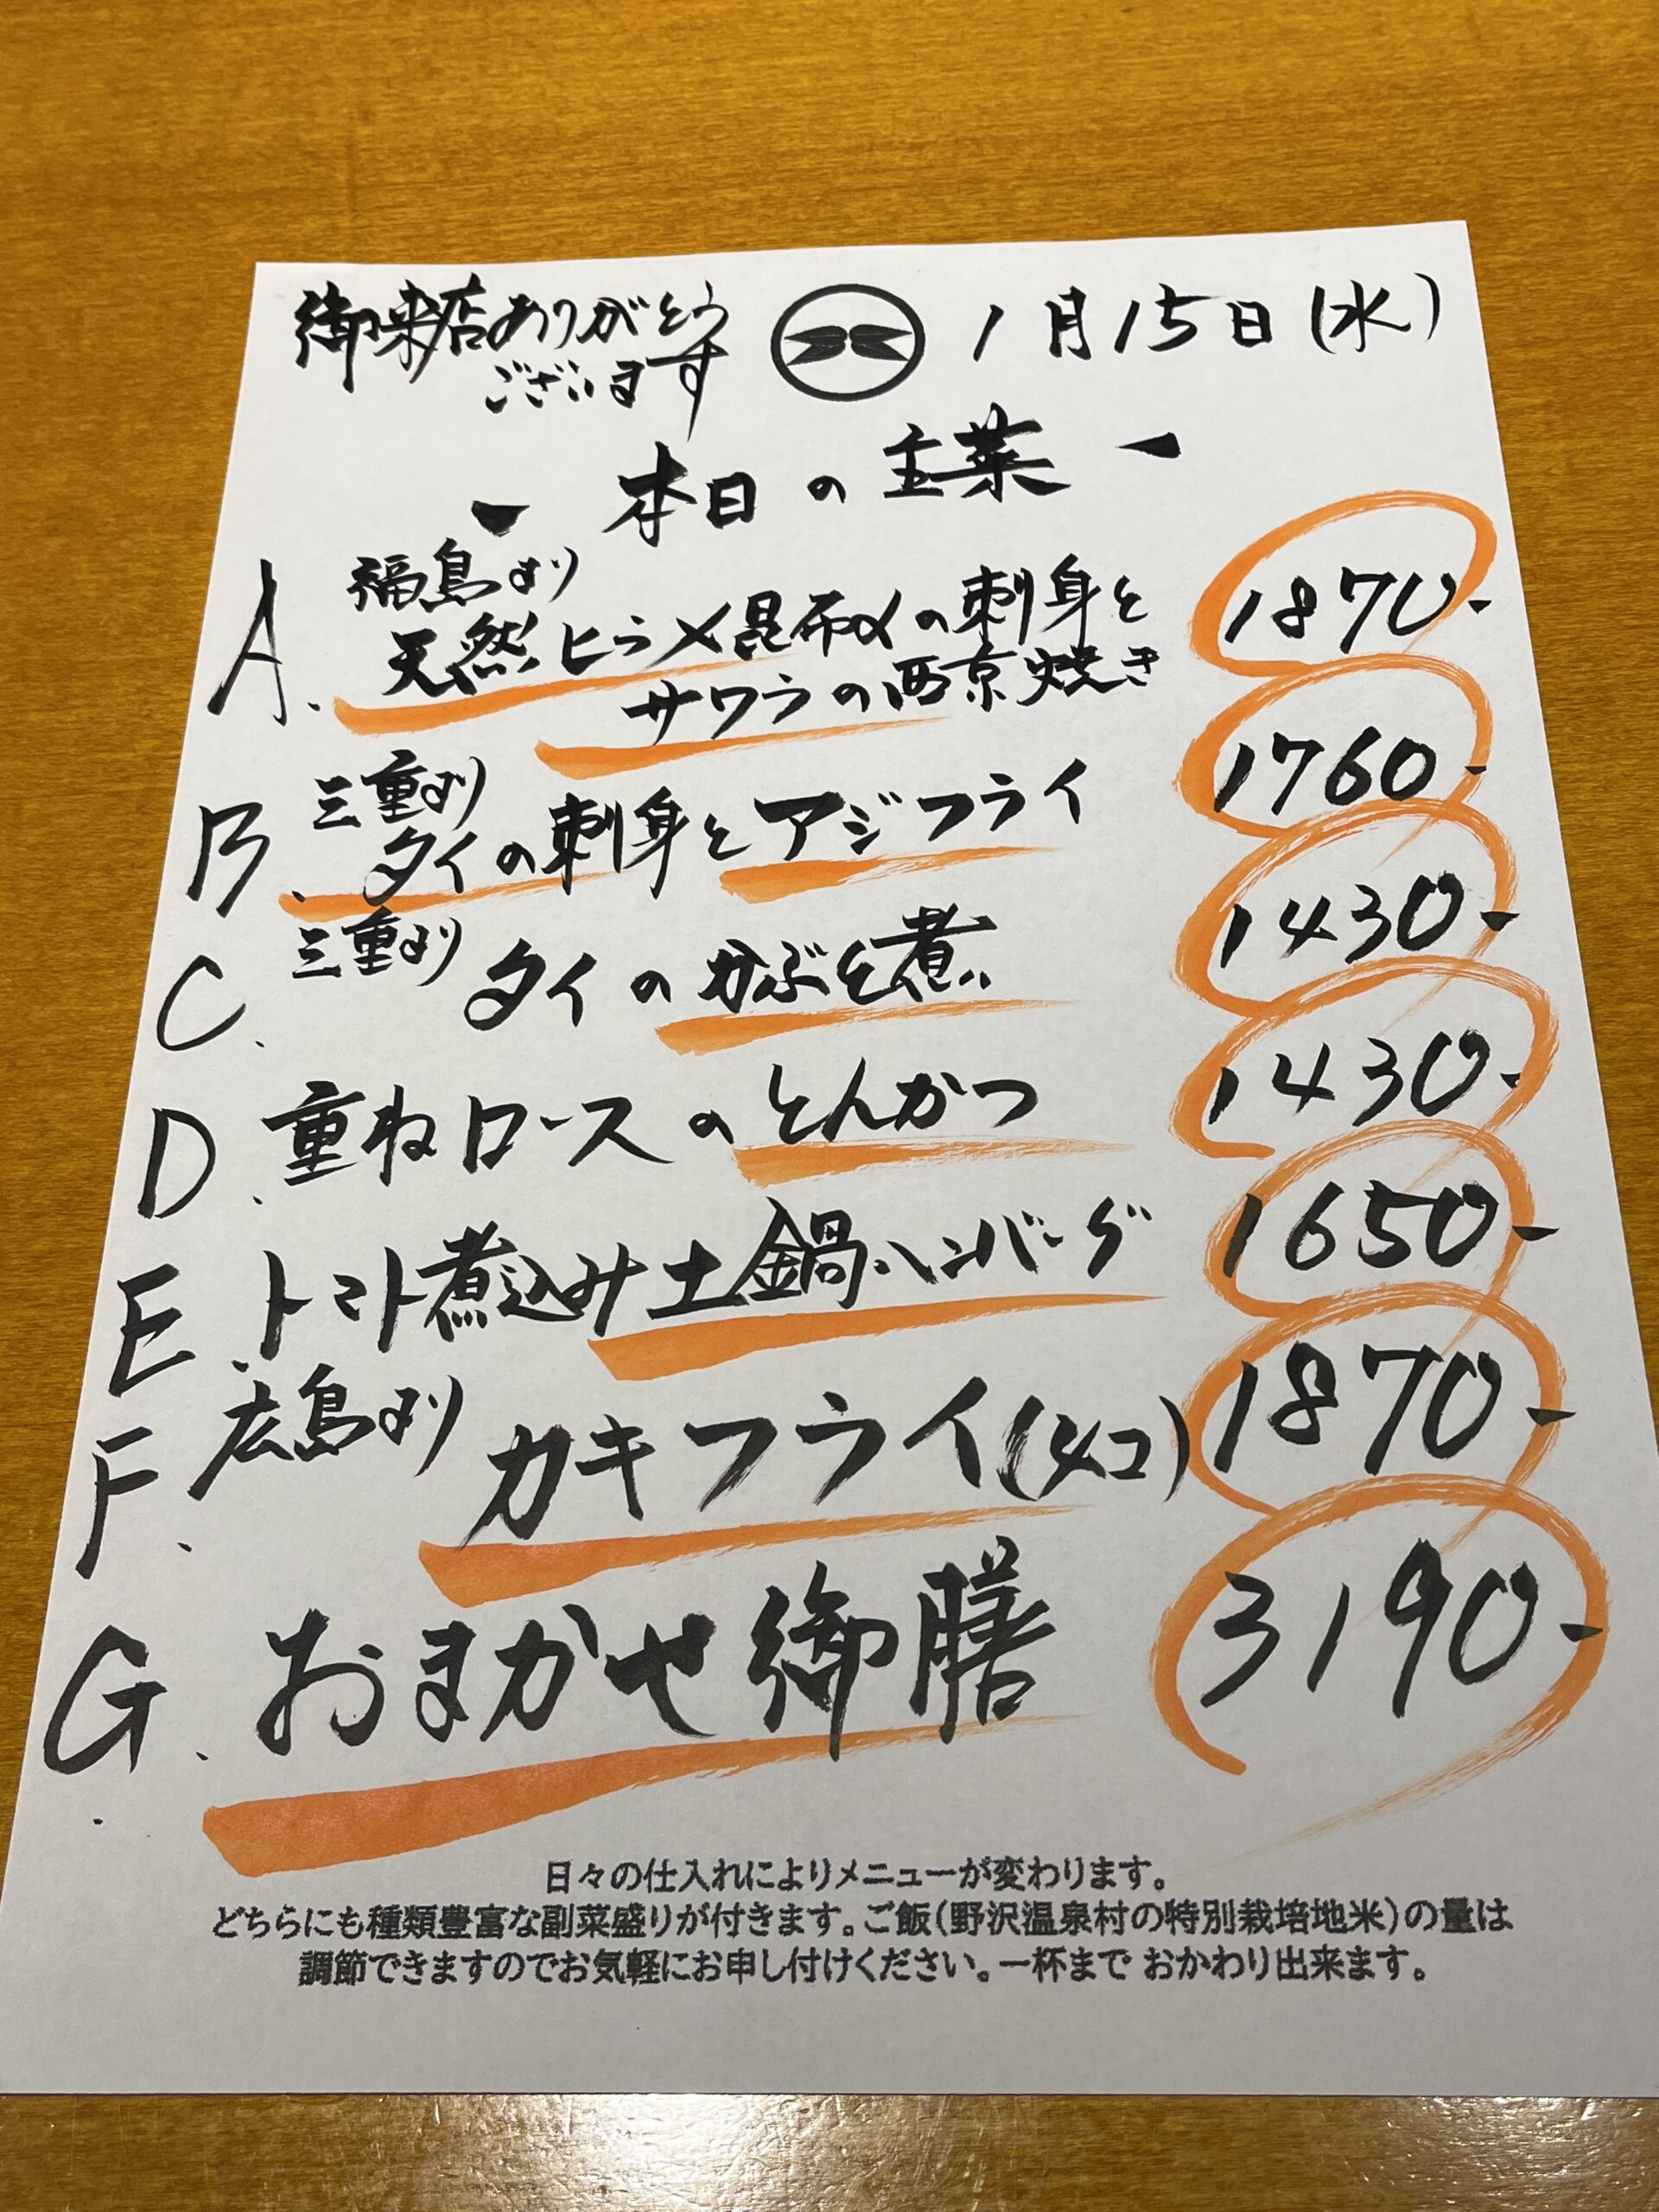 御来店ありがとう
ございます
1月15日(水)
本日の主菜
A. 福島より
天然ヒラメ昆布〆の刺身と
サワラの西京焼き 1870-
B. 三重より
タイの刺身とアジフライ 1760-
C. 三重より タイのかぶと煮 1430-
D. 重ねロースのとんかつ 1430-
E. トマト煮込み土鍋ハンバーグ 1650-
F. 広島より カキフライ(4コ) 1870-
G. おまかせ御膳 3190-
日々の仕入れによりメニューが変わります。
どちらにも種類豊富な副菜盛りが付きます。ご飯(野沢温泉村の特別栽培地米)の量は
調節できますのでお気軽にお申し付けください。一杯まで おかわり出来ます。